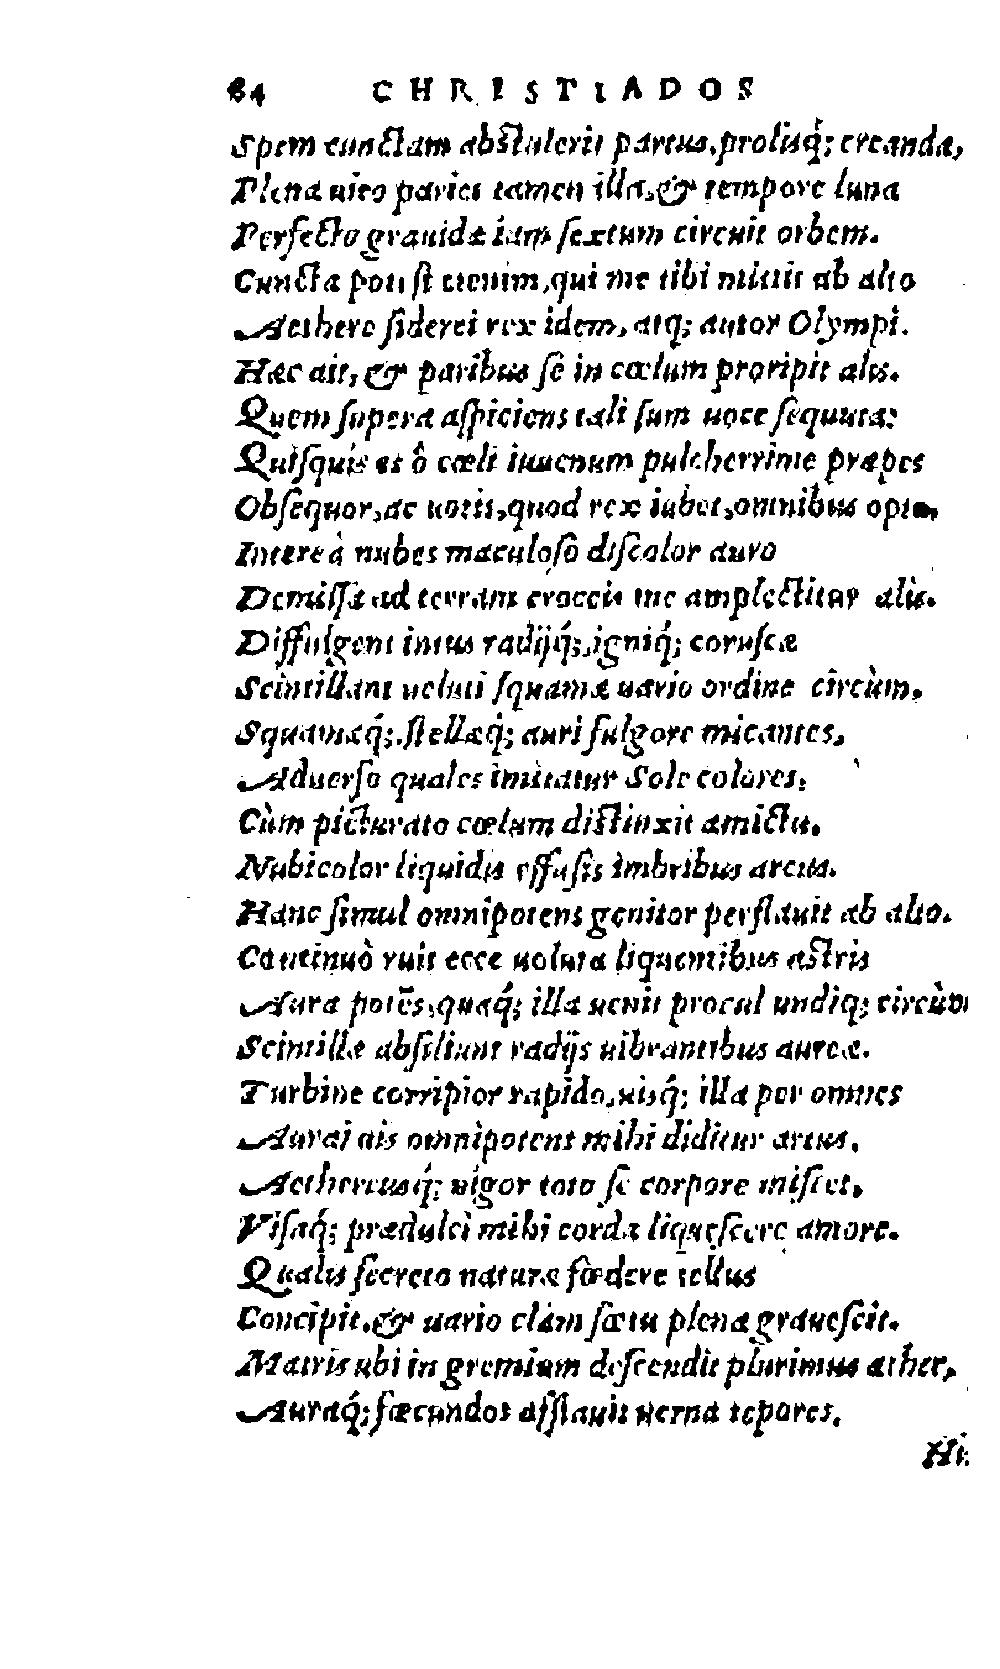 84 CHRISTIADOS
Spem cunctam abstulerit partus, prolisq́; creanda,
Plena uteo pariet tamen illa, & tempore luna
Perfecto grauidæ iam sextum circuit orbem.
Cuncta potis st etenim, qui me tibi mittit ab alto
Aethere siderei rex idem, atq; autor Olympi.
Hæc ait, & paribus se in cœlum proripit alis.
Quem supera aspiciens tali sum uoce sequuta:
Quisquis es ô cœli iuuenum pulcherrime præpes
Obsequor, ac uotis, quod rex iubet, omnibus opto,
Intereà nubes maculoso discolor auro
Demissa ad terram croceis me amplectitur alis.
Diffulgent intus radijq́;, igniq́; coruscæ
Scintillant ueluti squamæ uario ordine circùm.
Squamæq́;, stellæq́; auri fulgore micantes,
Aduerso quales imitatur Sole colores,
Cùm picturato cœlum distinxit amictu.
Nubicolor liquidis effusis imbribus arcus.
Hanc simul omnipotens genitor perflauit ab alto.
Continuò ruit ecce uoluta liquentibus astris
Aura potēs, quaq́; illa uenit procul undiq; circùm
Scintillæ absiliunt radijs uibrantibus aureæ.
Turbine corripior rapido, uisq́; illa per omnes
Auraï uis omnipotens mihi diditur artus,
Aethereusq́; uigor toto se corpore miscet,
Visaq́; prædulci mihi corda liquescere amore.
Qualis secreto naturæ fœdere tellus
Concipit, & uario clàm fœtu plena grauescit.
Matris ubi in gremium descendit plurimus æther,
Auraq́; fœcundos afflauit uerna tepores.